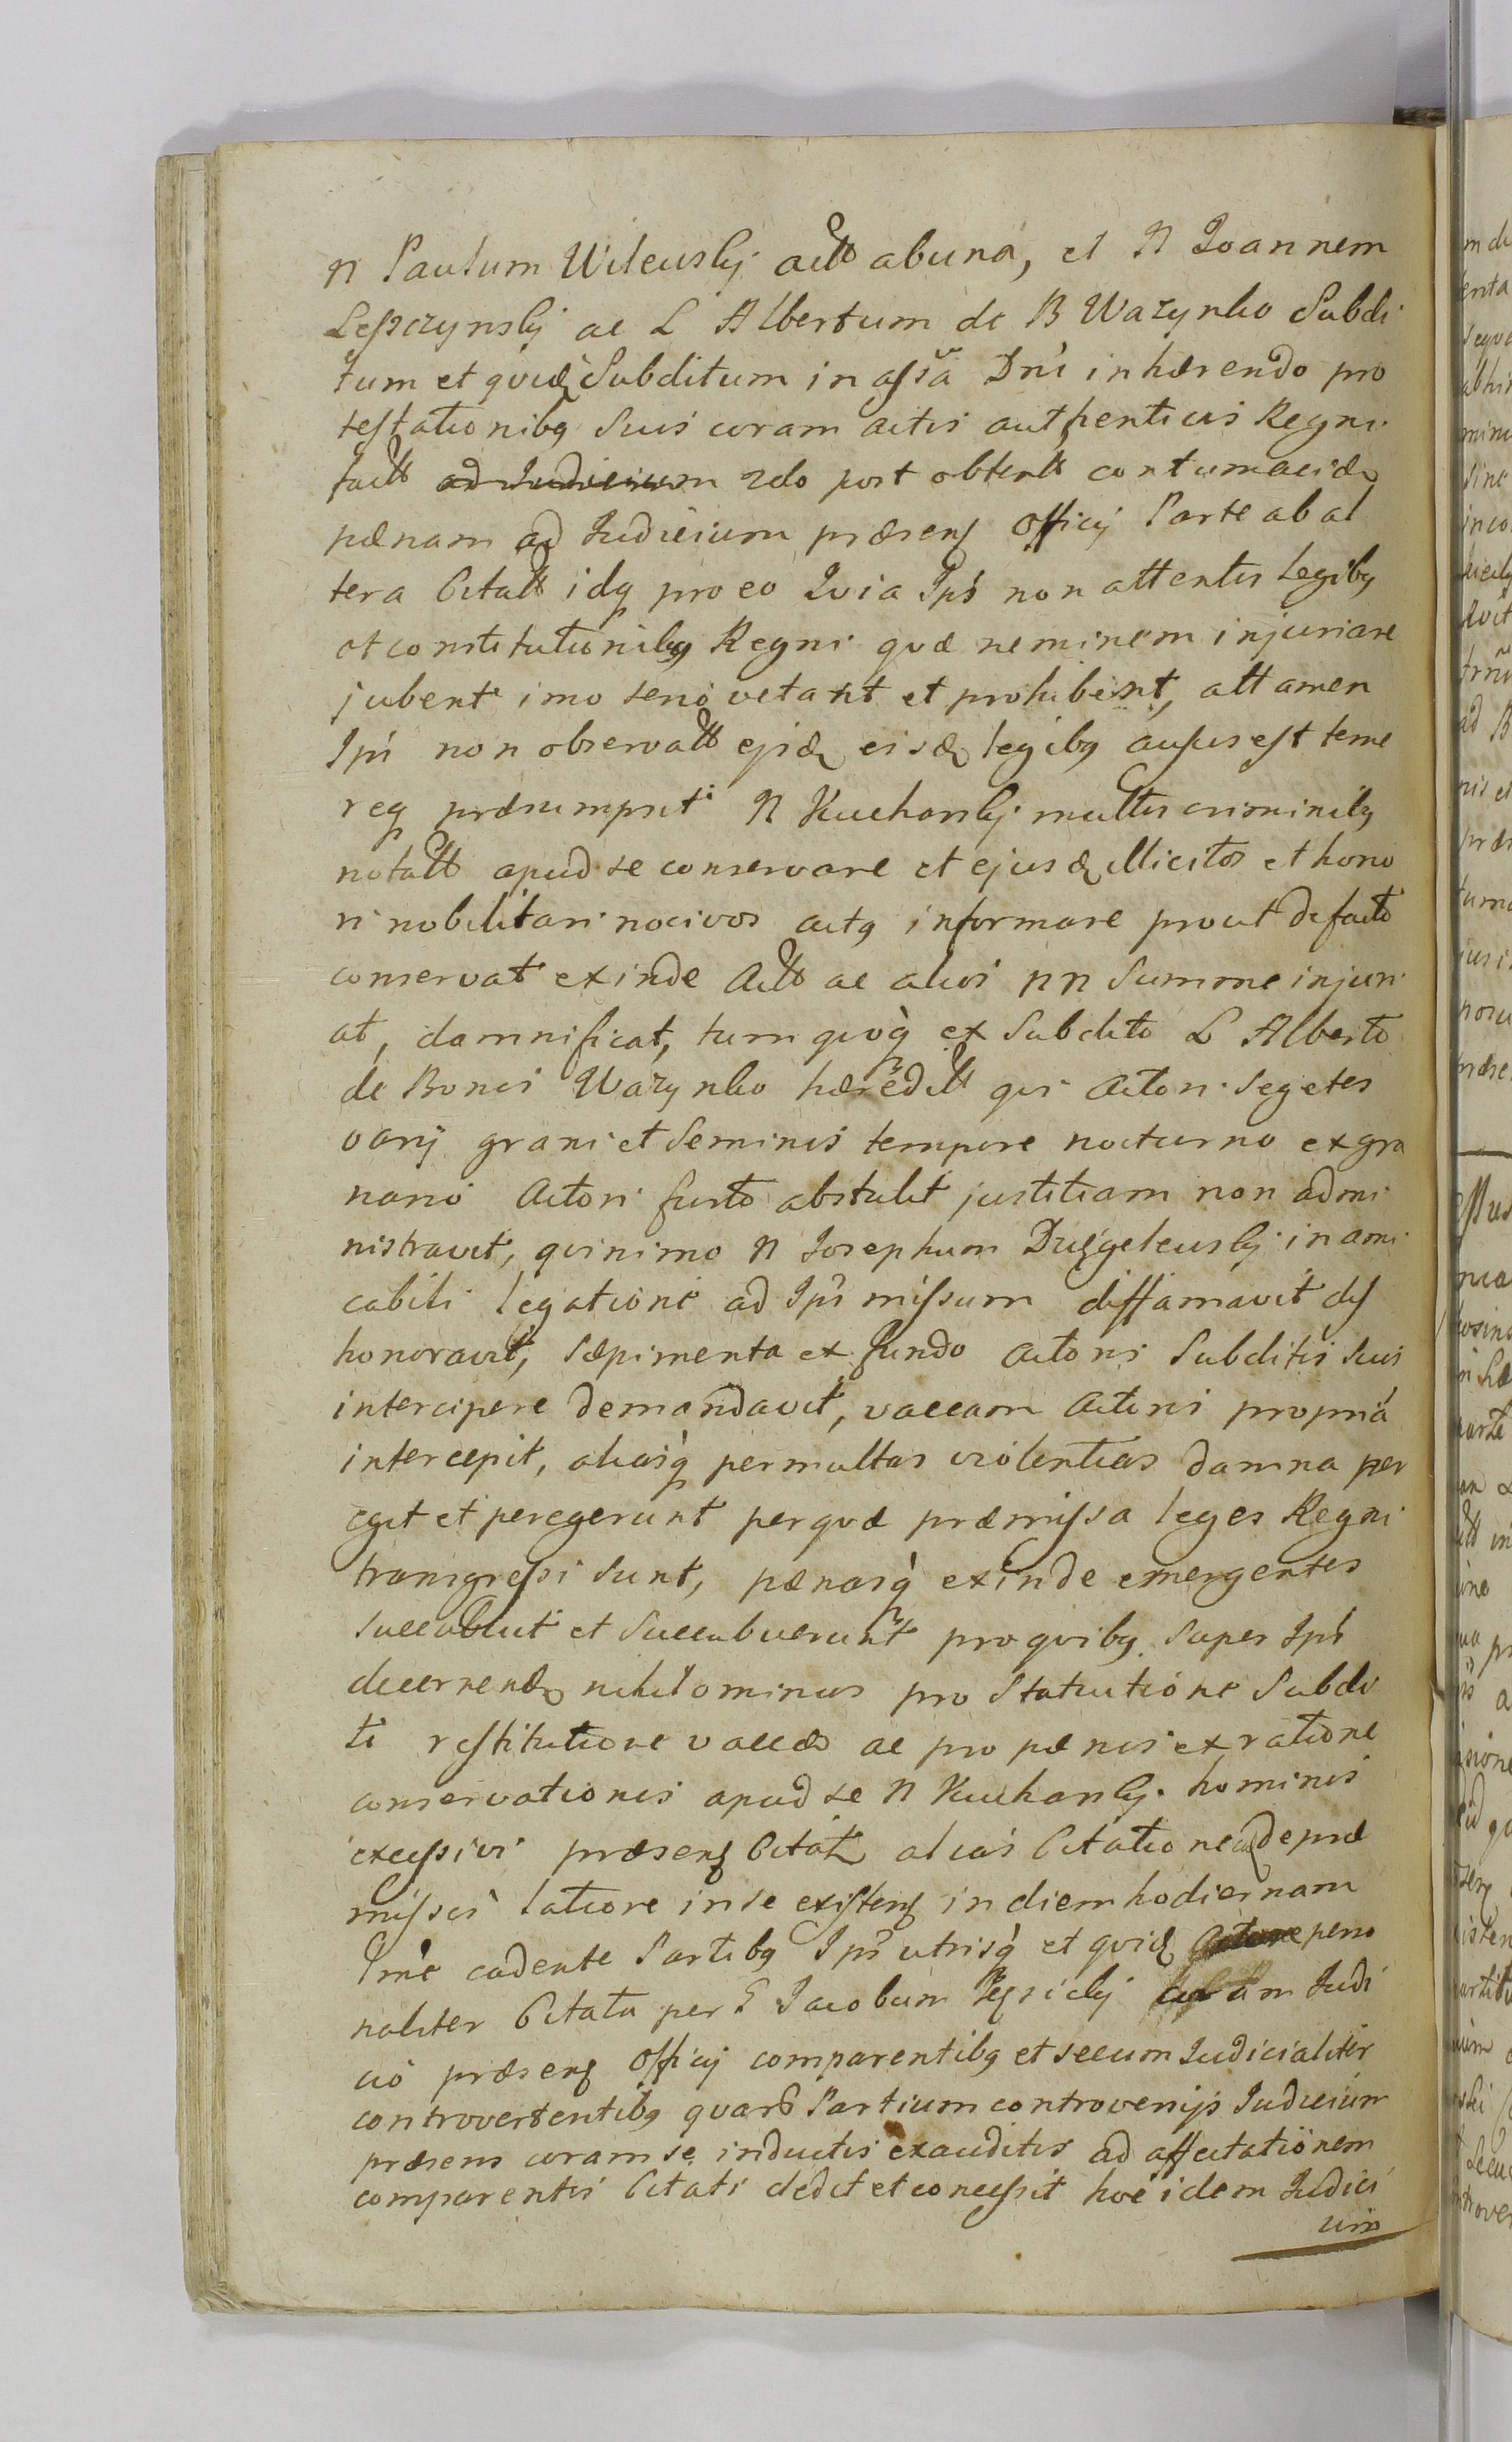 N Paulum Wilewskj actt abuna, et N Joannem
Leszczynskj ac L Albertum de B Wazynko Subdi
tum et qvidē Subditum in assā Dni inhærendo pro
testationibq Suis coram actis authenticis Regni
factt ad Judicium 2do post obtentt contumaciæ
pænam ad Judicium præsens officij Parte ab al
tera Citatt idq pro eo Qvia Ips non attentis Legibq
et constitutionibq Regni qvæ neminem injuriare
jubent imo serio vetant et prohibent, attamen
Ips non observatt ejsdē eisdē legibq ausus est teme
req præsumpsit N Kuchanskj multis criminibq
notatt apud se conservare et ejusdē illicitos et hono
ri nobilitari nocivos actq informare prout defacto
conservat exinde Actt ac alios nn Summe injuri
at, damnificat, tum qvoq ex Subdito L Alberto
de Bonis Wazynko hæreditt qvi Actori segetes
varij grani et Seminis tempore nocturno ex gra
nario Actori furto abstulit justitiam non admi
nistravit, qvinimo N Josephum Duzgelewskj in ami
cabili legatione ad Ips missum diffamavit des
honoravit, sæpimenta ex fundo Actoris Subditis suis
intercipere demandavit, vaccam Actoris propriá
intercepit, aliasq permultas violentias damna per
egit et peregerunt per qvæ præmissa leges Regni
transgressi sunt, pænasq exinde emergentes
succubuit et Succubuerunt pro qvibq Super Ips
decernendis nihilominus pro Statuitione Subdi
ti restitutione vaccæ ac pro pænis ex ratione
conservationis apud se N Kuchanskj hominis
excessivi præsens Citatt alias Citatione de præ
missis latiore in se existens in diem hodiernam
Tme cadente Partibq Ips utrisq et qvidē Actore perso
naliter Citato per G Jacobum coram Judi
cio præsens officij comparentibq et secum Judicialiter
controvertentibq qvar Partium controversijs Judicium
præsens coram se inductis exauditis ad affectationem
comparentis Citati dedit et concessit hoc idem Judici
um